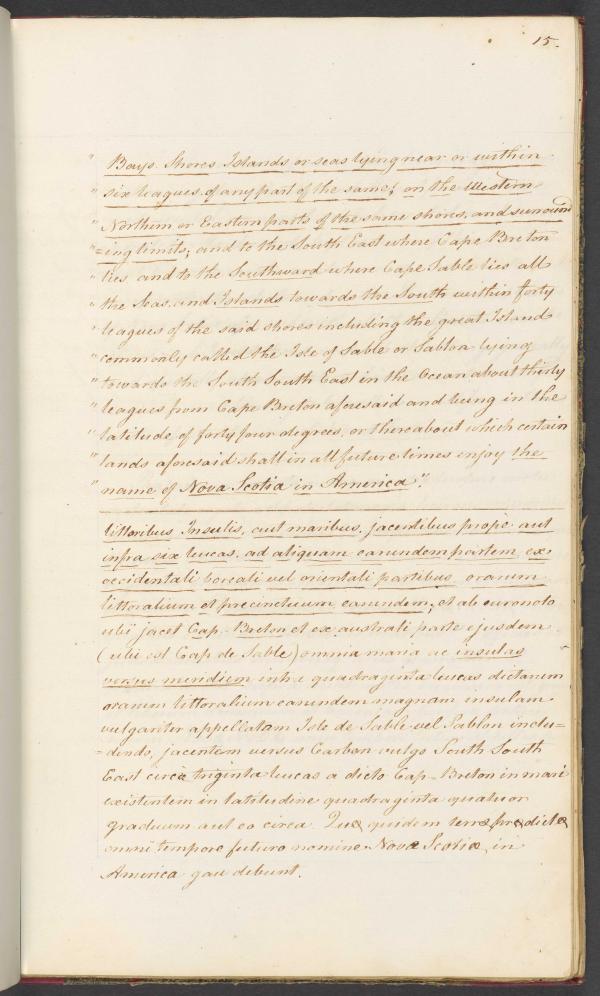 15.
" Bays. Shores Islands or seas lying near or within
" six leagues of any part of the same; on the Western
" Northern or Eastern parts of the same shores, and surround
"=ing limits; and to the South East where Cape Breton
" lies and to the Southward where Cape Sable lies all
" the Seas. and Islands towards the South within forty
" leagues of the said shores including the great Island
" commonly called the Isle of Sable or Sablon lying
" towards the South South East in the Ocean about thirty
" leagues from Cape Breton aforesaid and being in the
" latitude of forty four degrees, or thereabout which certain
" lands aforesaid shall in all future times enjoy the
" name of Nova Scotia in America".
littoribus Insulis, aut maribus, jacentibus prope aut
infra six leucas, ad aliquam earundem partem ex
occidentali boreali vel orientali partibus orarum
littoralium et precinctuum earundem; et ab euronoto
ubi jacet Cap-Breton et ex australi parte ejusdem
(ubi est Cap de Sable) omnia maria ac insulas
versus meridiem intra quadraginta leucas dictarum
orarum littoralium earundem magnam insulam
vulgariter appellatam Isle de Sable vel Sablon inclu=
=dendo, jacentem versus Carban vulgo South South
East circa triginta leucas a dicto Cap-Breton in mari
existentem in latitudine quadraginta quatuor
graduum aut eo circa. Quæ quidem terræ prædictæ
omni tempore futuro nomine Novæ Scotiæ in
America gaudebunt.